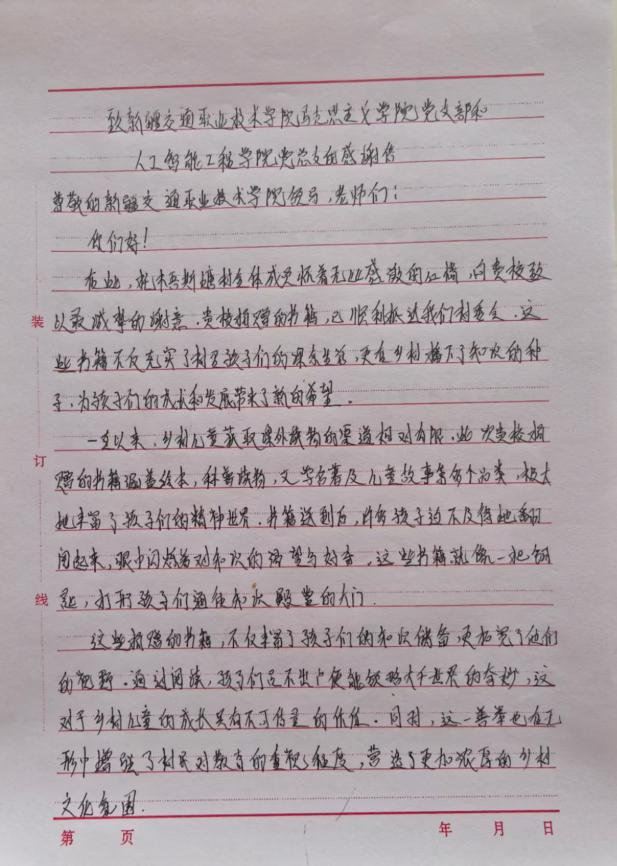 致新疆交通职业技术学院马克思主义学院党支部和
人工智能工程学院党总支的感谢信
尊敬的新疆交通职业技术学院领导,老师们:
你们好!
在此,托木吾斯塘村全体成员怀着无比感激的心情,向贵校致
以最诚挚的谢意.贵校捐赠的书籍,已顺利抵达我们村委会.这
些书籍不仅充实了村里孩子们的课余生活,更在乡村播下了知识的种
子,为孩子们的成长和发展带来了新的希望。
一直以来,乡村儿童获取课外读物的渠道相对有限.此次贵校捐
赠的书籍涵盖绘本,科普读物,文学名著及儿童故事等多个品类,极大
地丰富了孩子们的精神世界.书籍送到后,许多孩子迫不及待地翻
阅起来,眼中闪烁着对知识的渴望与好奇。这些书籍就像一把钥
匙,打开孩子们通往知识殿堂的大门.
这些捐赠的书籍,不仅丰富了孩子们的知识储备,更拓宽了他们
的视野.通过阅读,孩子们足不出户便能领略大千世界的奇妙,这
对于乡村儿童的成长具有不可估量的价值.同时,这一善举也在无
形中增强了村民对教育的重视程度,营造了更加浓厚的乡村
文化氛围.
装
订
线
第 页 年 月 日